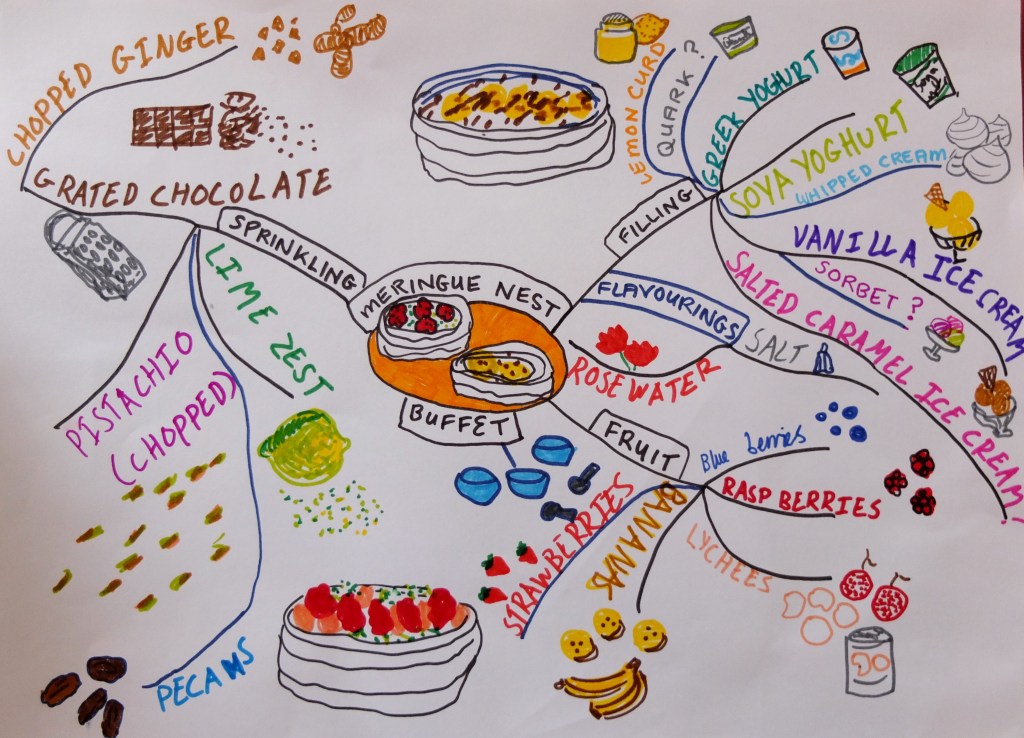 MERINGUE NEST
BUFFET
SPRINKLING
CHOPPED GINGER
GRATED CHOCOLATE
LIME ZEST
PISTACHIO
(CHOPPED)
PECANS
FILLING
LEMON CURD
QUARK ?
GREEK YOGHURT
SOYA YOGHURT
WHIPPED CREAM
VANILLA ICE CREAM
SORBET ?
SALTED CARAMEL ICE CREAM?
FLAVOURINGS
ROSE WATER
SALT
FRUIT
Blue berries
RASPBERRIES
LYCHEES
BANANAS
STRAWBERRIES